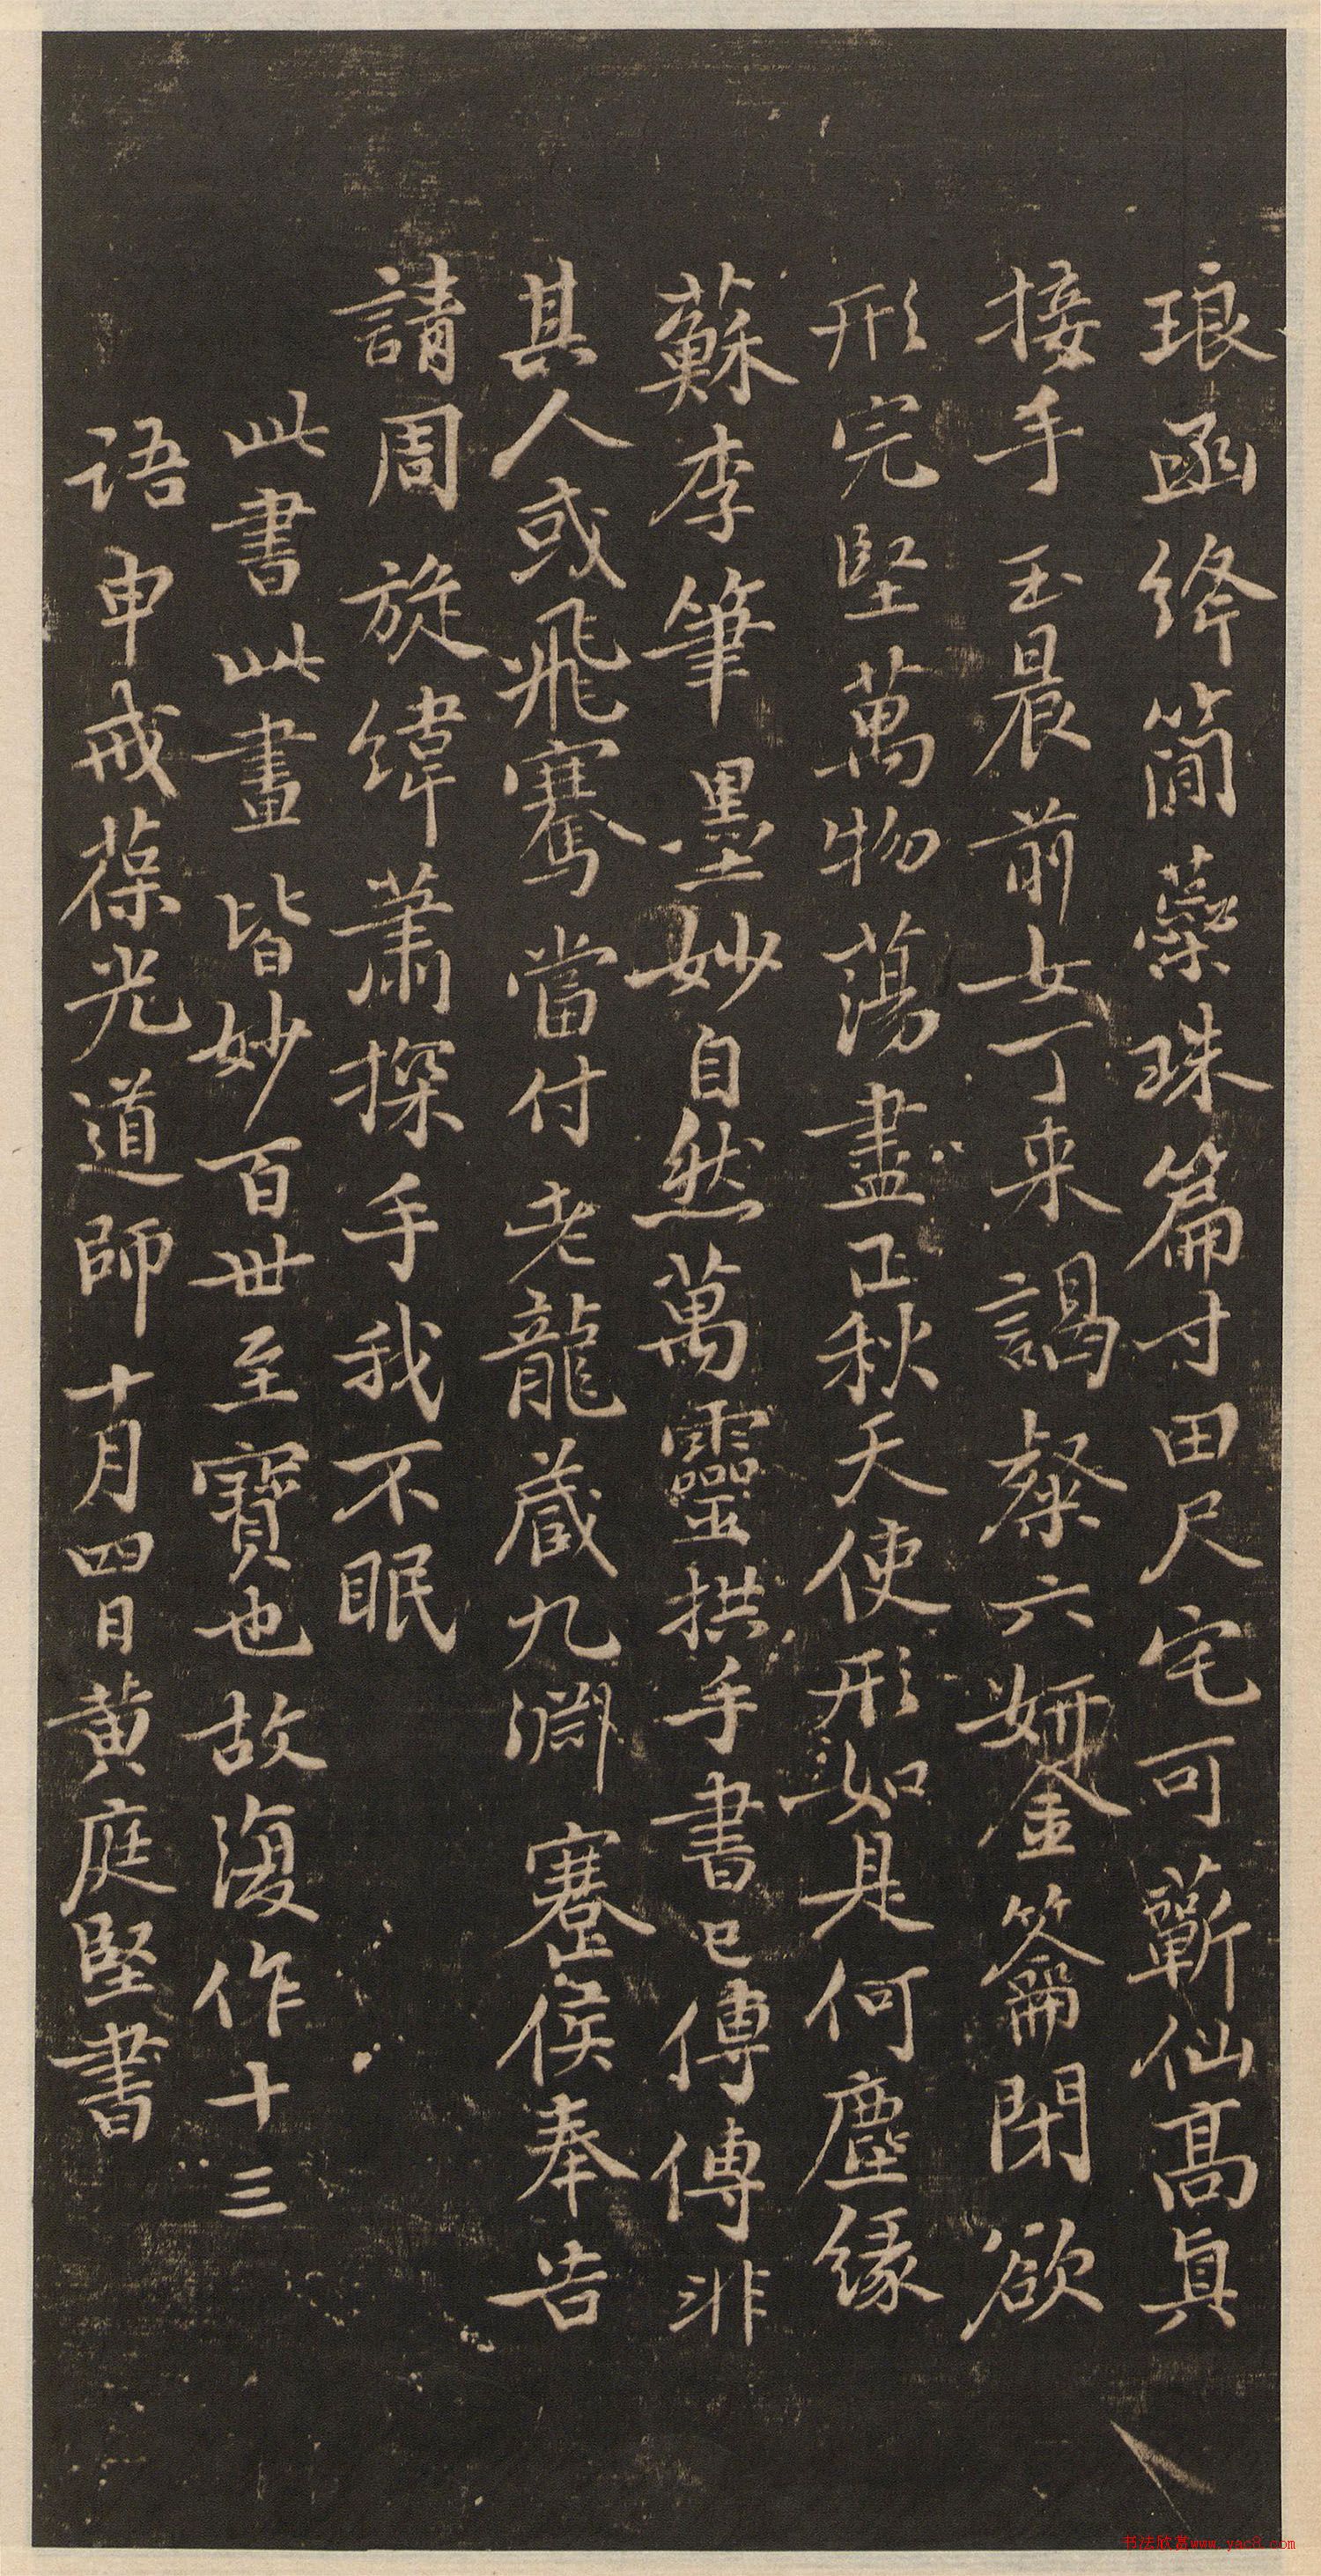 琅函絳簡蘂珠篇寸田尺宅可蘄仙高眞
接手玉晨前女丁来謁粲六妍金籥閉欲
形完堅萬物蕩盡正秋天使形如是何塵緣
蘇李筆墨妙自然萬靈拱手書已傳傳非
其人或飛騫當付老龍蔵九淵蹇侯奉告
請周旋緯蕭探手我不眠
此書此畫皆妙百世至寶也故復作十三
語申戒葆光道師十月四日黄庭堅書
书法欣赏www.yac8.com